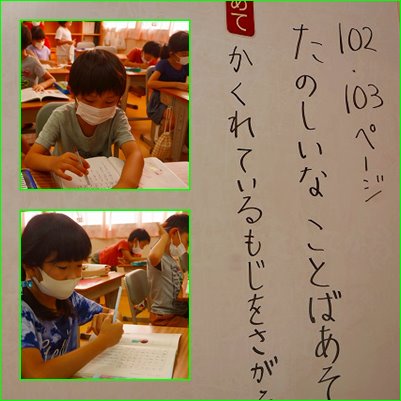 102・103ページ
たのしいな ことばあそ
めて
かくれているもじをさが